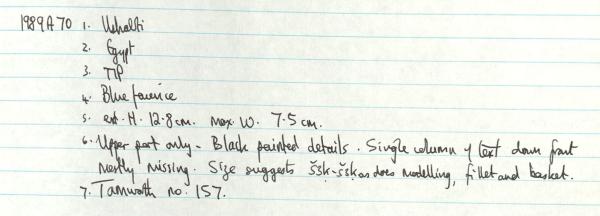 1989A70 1. Ushabti
2. Egypt
3. TIP
4. Blue faience
5. ext. H. 12.8cm. max. W. 7.5cm.
6. Upper part only - Black painted details. Single column of text down front
mostly missing. Size suggests ššḳ-ššḳ as does modelling, fillet and basket.
7. Tamworth no. 157.